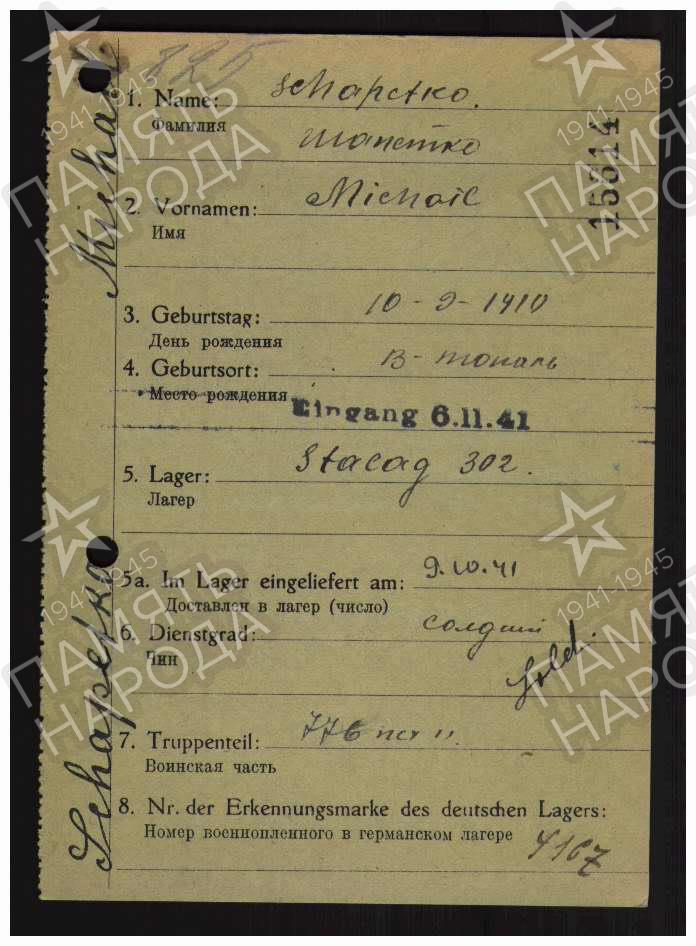 825
1. Name: Schapetko.
Фамилия
Шапетко
2. Vornamen: Michail
Имя
15314
3. Geburtstag: 10-9-1910
День рождения
4. Geburtsort:
Место рождения
Eingang 6.11.41
5. Lager: Stalag 302.
Лагер
5a. Im Lager eingeliefert am: 9.10.41
Доставлен в лагер (число)
6. Dienstgrad:
Чин
Sold.
7. Truppenteil: 776
Воинская часть
8. Nr. der Erkennungsmarke des deutschen Lagers:
Номер военнопленного в германском лагере
4167
Schapetko Michail
1941-1945
ПАМЯТЬ
НАРОДА
1941-1945
ПАМЯТЬ
НАРОДА
1941-1945
ПАМЯТЬ
НАРОДА
1941-1945
ПАМЯТЬ
НАРОДА